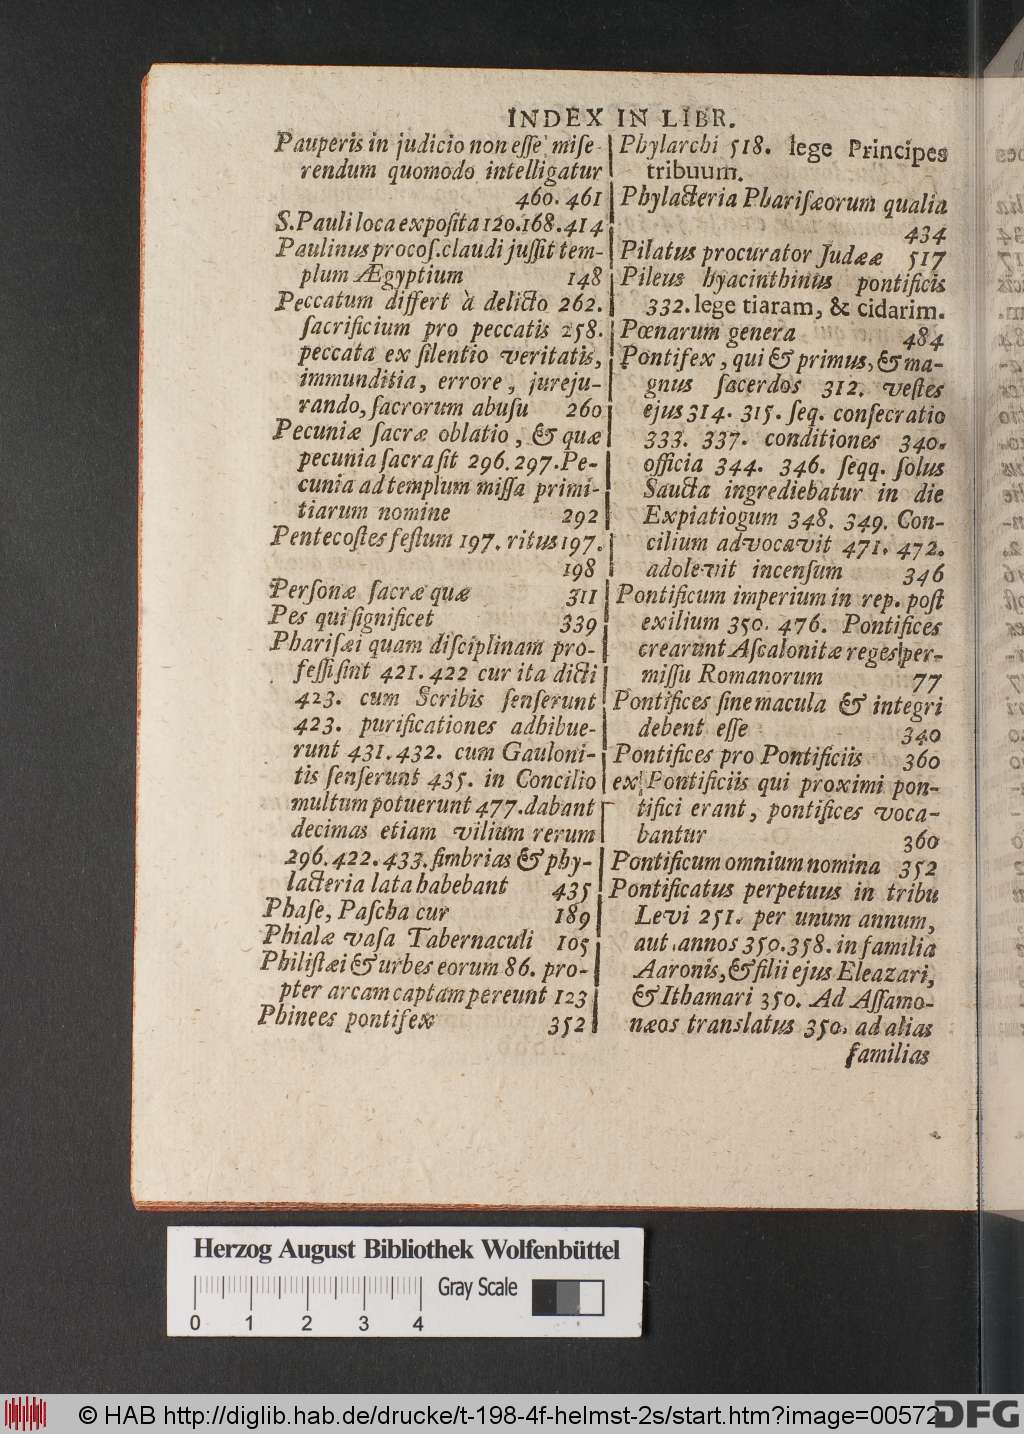 INDEX IN LIBR.
Pauperis in judicio non eſſe miſe-
rendum quomodo intelligatur
460. 461
S. Pauli loca expoſita 120.168.414
Paulinus procoſ. claudi juſſit tem-
plum Ægyptium 148
Peccatum differt à delicto 262.
ſacrificium pro peccatis 258.
peccata ex ſilentio veritatis,
immunditia, errore, jureju-
rando, ſacrorum abuſu 260
Pecuniæ ſacræ oblatio, & quæ
pecunia ſacra ſit 296. 297. Pe-
cunia ad templum miſſa primi-
tiarum nomine 292
Pentecoſtes feſtum 197. ritus 197.
198
Perſonæ ſacræ quæ 311
Pes qui ſignificet 339
Phariſæi quam diſciplinam pro-
feſſi ſint 421. 422 cur ita dicti
423. cum Scribis ſenſerunt
423. purificationes adhibue-
runt 431. 432. cum Gauloni-
tis ſenſerunt 435. in Concilio
multum potuerunt 477. dabant
decimas etiam vilium rerum
296. 422. 433. fimbrias & phy-
lacteria lata habebant 435
Phaſe, Paſcha cur 189
Phialæ vaſa Tabernaculi 105
Philiſtæi & urbes eorum 86. pro-
pter arcam captam pereunt 123
Phinees pontifex 352
Phylarchi 518. lege Principes
tribuum.
Phylacteria Phariſæorum qualia
434
Pilatus procurator Judææ 517
Pileus hyacinthinus pontificis
332. lege tiaram, & cidarim.
Pœnarum genera 484
Pontifex, qui & primus, & ma-
gnus ſacerdos 312. veſtes
ejus 314. 315. ſeq. conſecratio
333. 337. conditiones 340.
officia 344. 346. ſeqq. ſolus
Saucta ingrediebatur in die
Expiatiogum 348. 349. Con-
cilium advocavit 471. 472.
adolevit incenſum 346
Pontificum imperium in rep. poſt
exilium 350. 476. Pontifices
crearunt Aſcalonitæ reges per-
miſſu Romanorum 77
Pontifices ſine macula & integri
debent eſſe 340
Pontifices pro Pontificiis 360
ex Pontificiis qui proximi pon-
tifici erant, pontifices voca-
bantur 360
Pontificum omnium nomina 352
Pontificatus perpetuus in tribu
Levi 251. per unum annum,
aut annos 350. 358. in familia
Aaronis, & filii ejus Eleazari,
& Ithamari 350. Ad Aſſamo-
næos translatus 350. ad alias
familias
Herzog August Bibliothek Wolfenbüttel
Gray Scale
0 1 2 3 4
© HAB http://diglib.hab.de/drucke/t-198-4f-helmst-2s/start.htm?image=00572
DFG